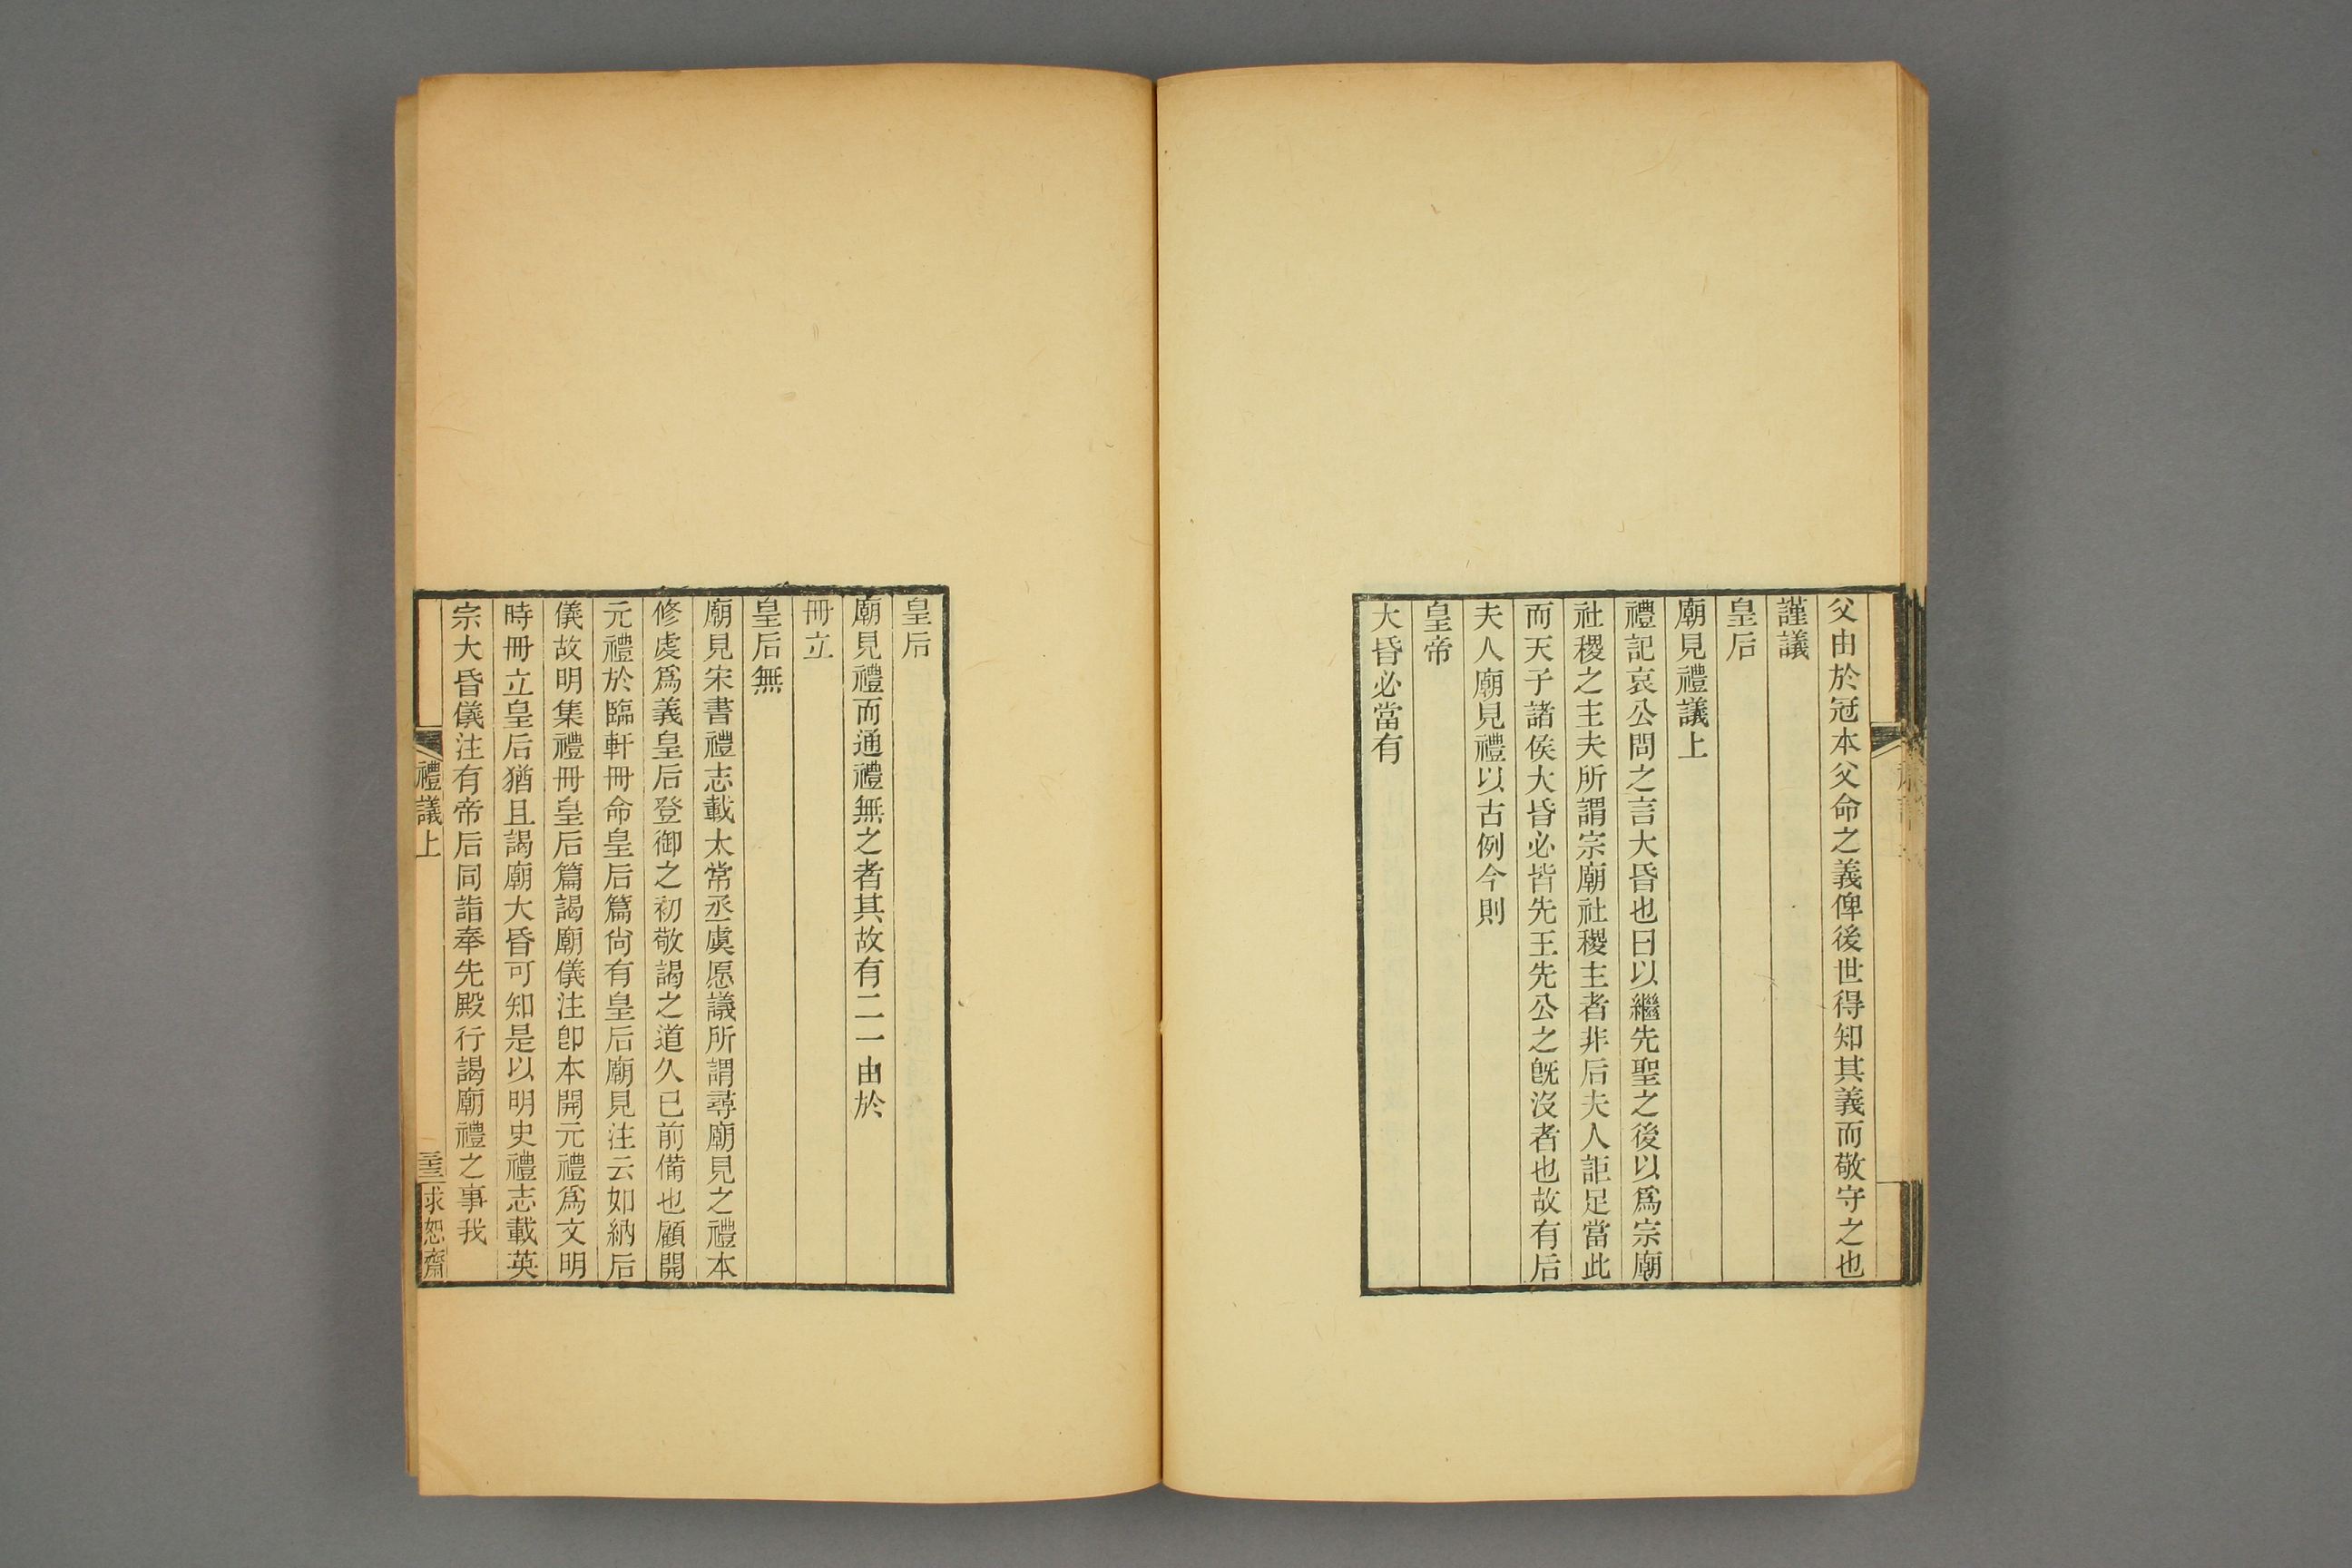 父由於冠本父命之義俾後世得知其義而敬守之也
謹議
皇后
廟見禮議上
禮記哀公問之言大昏也曰以繼先聖之後以爲宗廟
社稷之主夫所謂宗廟社稷主者非后夫人詎足當此
而天子諸侯大昏必皆先王先公之旣沒者也故有后
夫人廟見禮以古例今則
皇帝
大昏必當有
皇后
廟見禮而通禮無之者其故有二一由於
冊立
皇后無
廟見宋書禮志載太常丞虞愿議所謂尋廟見之禮本
修虔爲義皇后登御之初敬謁之道久已前備也顧開
元禮於臨軒冊命皇后篇尙有皇后廟見注云如納后
儀故明集禮冊皇后篇謁廟儀注卽本開元禮爲文明
時冊立皇后猶且謁廟大昏可知是以明史禮志載英
宗大昏儀注有帝后同詣奉先殿行謁廟禮之事我
禮議上
求恕齋